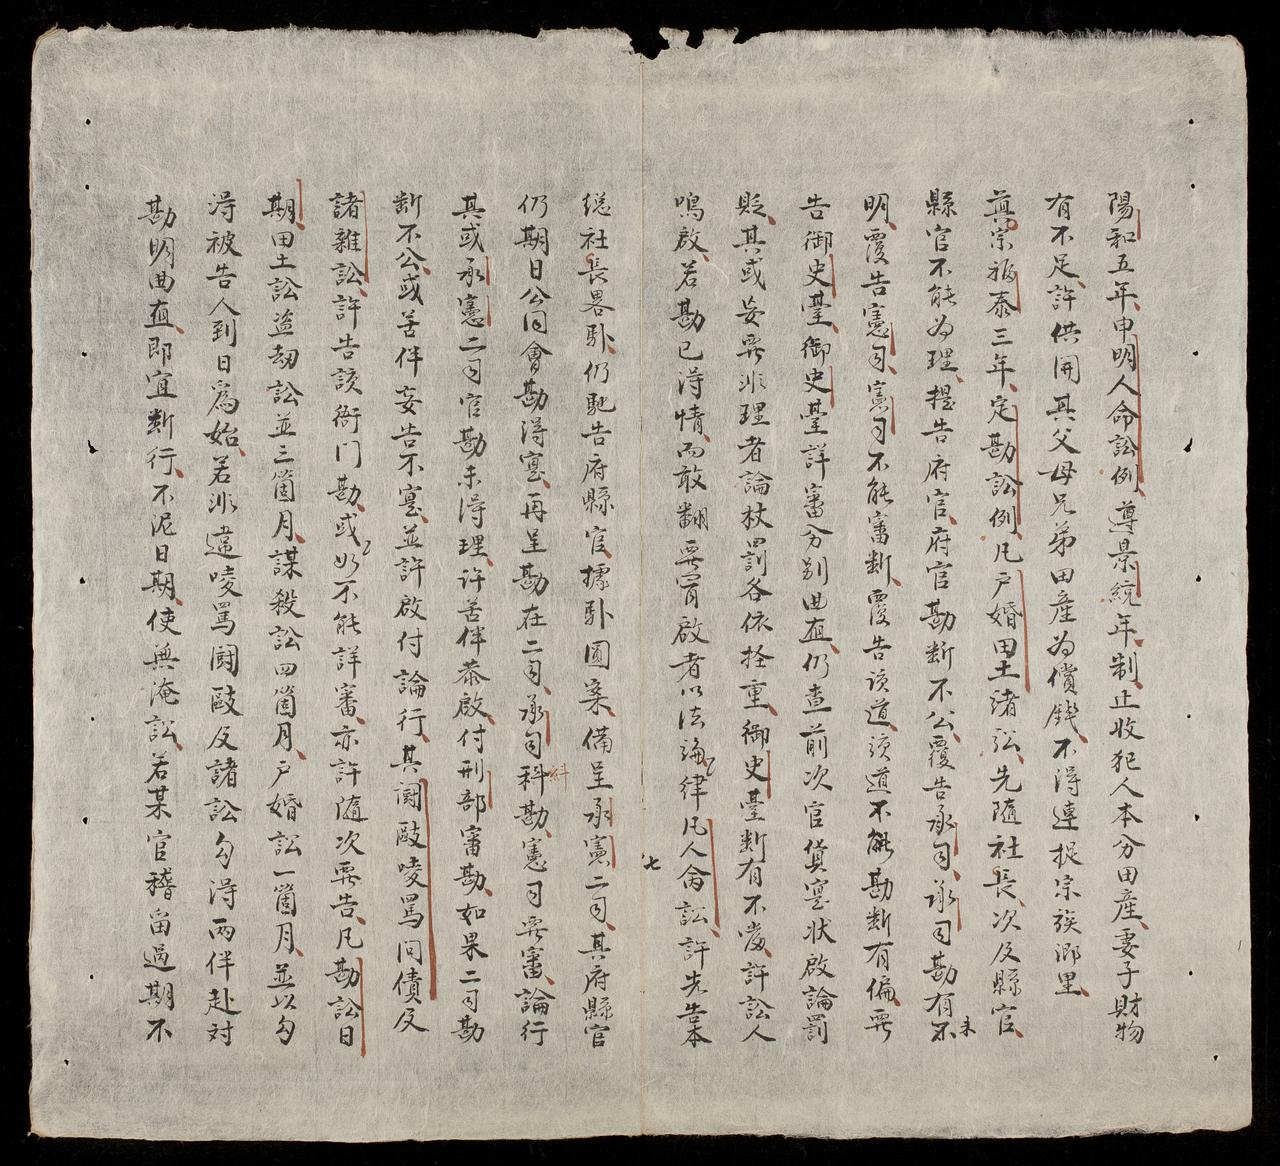 陽和五年、申明人命訟例、遵景統年制、止收犯人本分田産、妻子財物
有不足、許供開其父母兄弟田産为償錢、不淂連捉宗族鄉里、
真宗福泰三年、定勘訟例、凡户婚田土諸訟、先隨社長、次及縣官、
縣官不能为理、提告府官、府官勘断不公、覆告承司、承司勘有不未
明、覆告憲司、憲司不能審断、覆告該道、該道不能勘断有偏、要
告御史臺、御史臺詳審分别曲直、仍查前次官貨寔状啟論罰
貶、其或妄要非理者論杖罰各依拴重、御史臺断有不當、許訟人
鳴啟、若勘已淂情、而敢翻要冐啟者以法論律、凡人命訟、許先告本
総社長畧卧、仍馳告府縣官、據卧圓案、備呈承憲二司、其府縣官
仍期日公同會勘淂寔、再呈勘在二司、承司科勘、憲司要審、論行
科
其或承憲二司官勘未淂理、許苦伴恭啟、付刑部審勘、如果二司勘
断不公、或苦伴妄告不寔、並許啟付論行、其鬪毆唛罵同債及
諸雜訟、許告該衙门勘、或如不能詳審、亦許隨次要告、凡勘訟日
期、田土訟盗刼訟並三箇月、謀殺訟四箇月、户婚訟一箇月、並以勾
淂被告人到日爲始、若非違唛罵鬪毆及諸訟勾淂兩伴赴対
勘明曲直、即宜断行、不泥日期、使無淹訟、若某官稽畱過期不
七